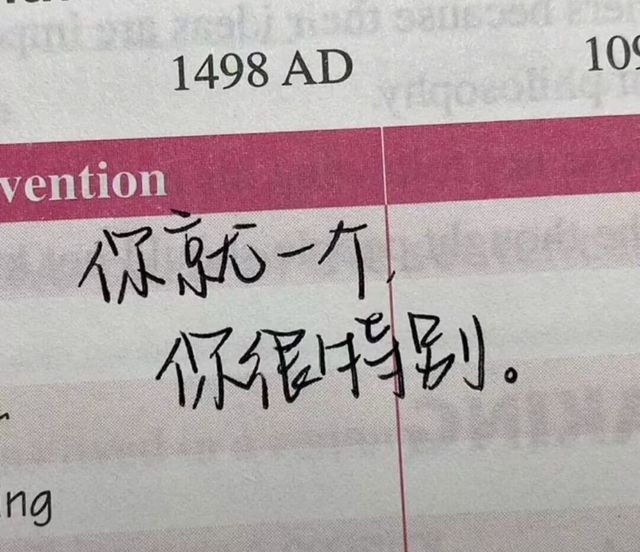 1498 AD
109
vention
你就一个,
你很特别。
ing